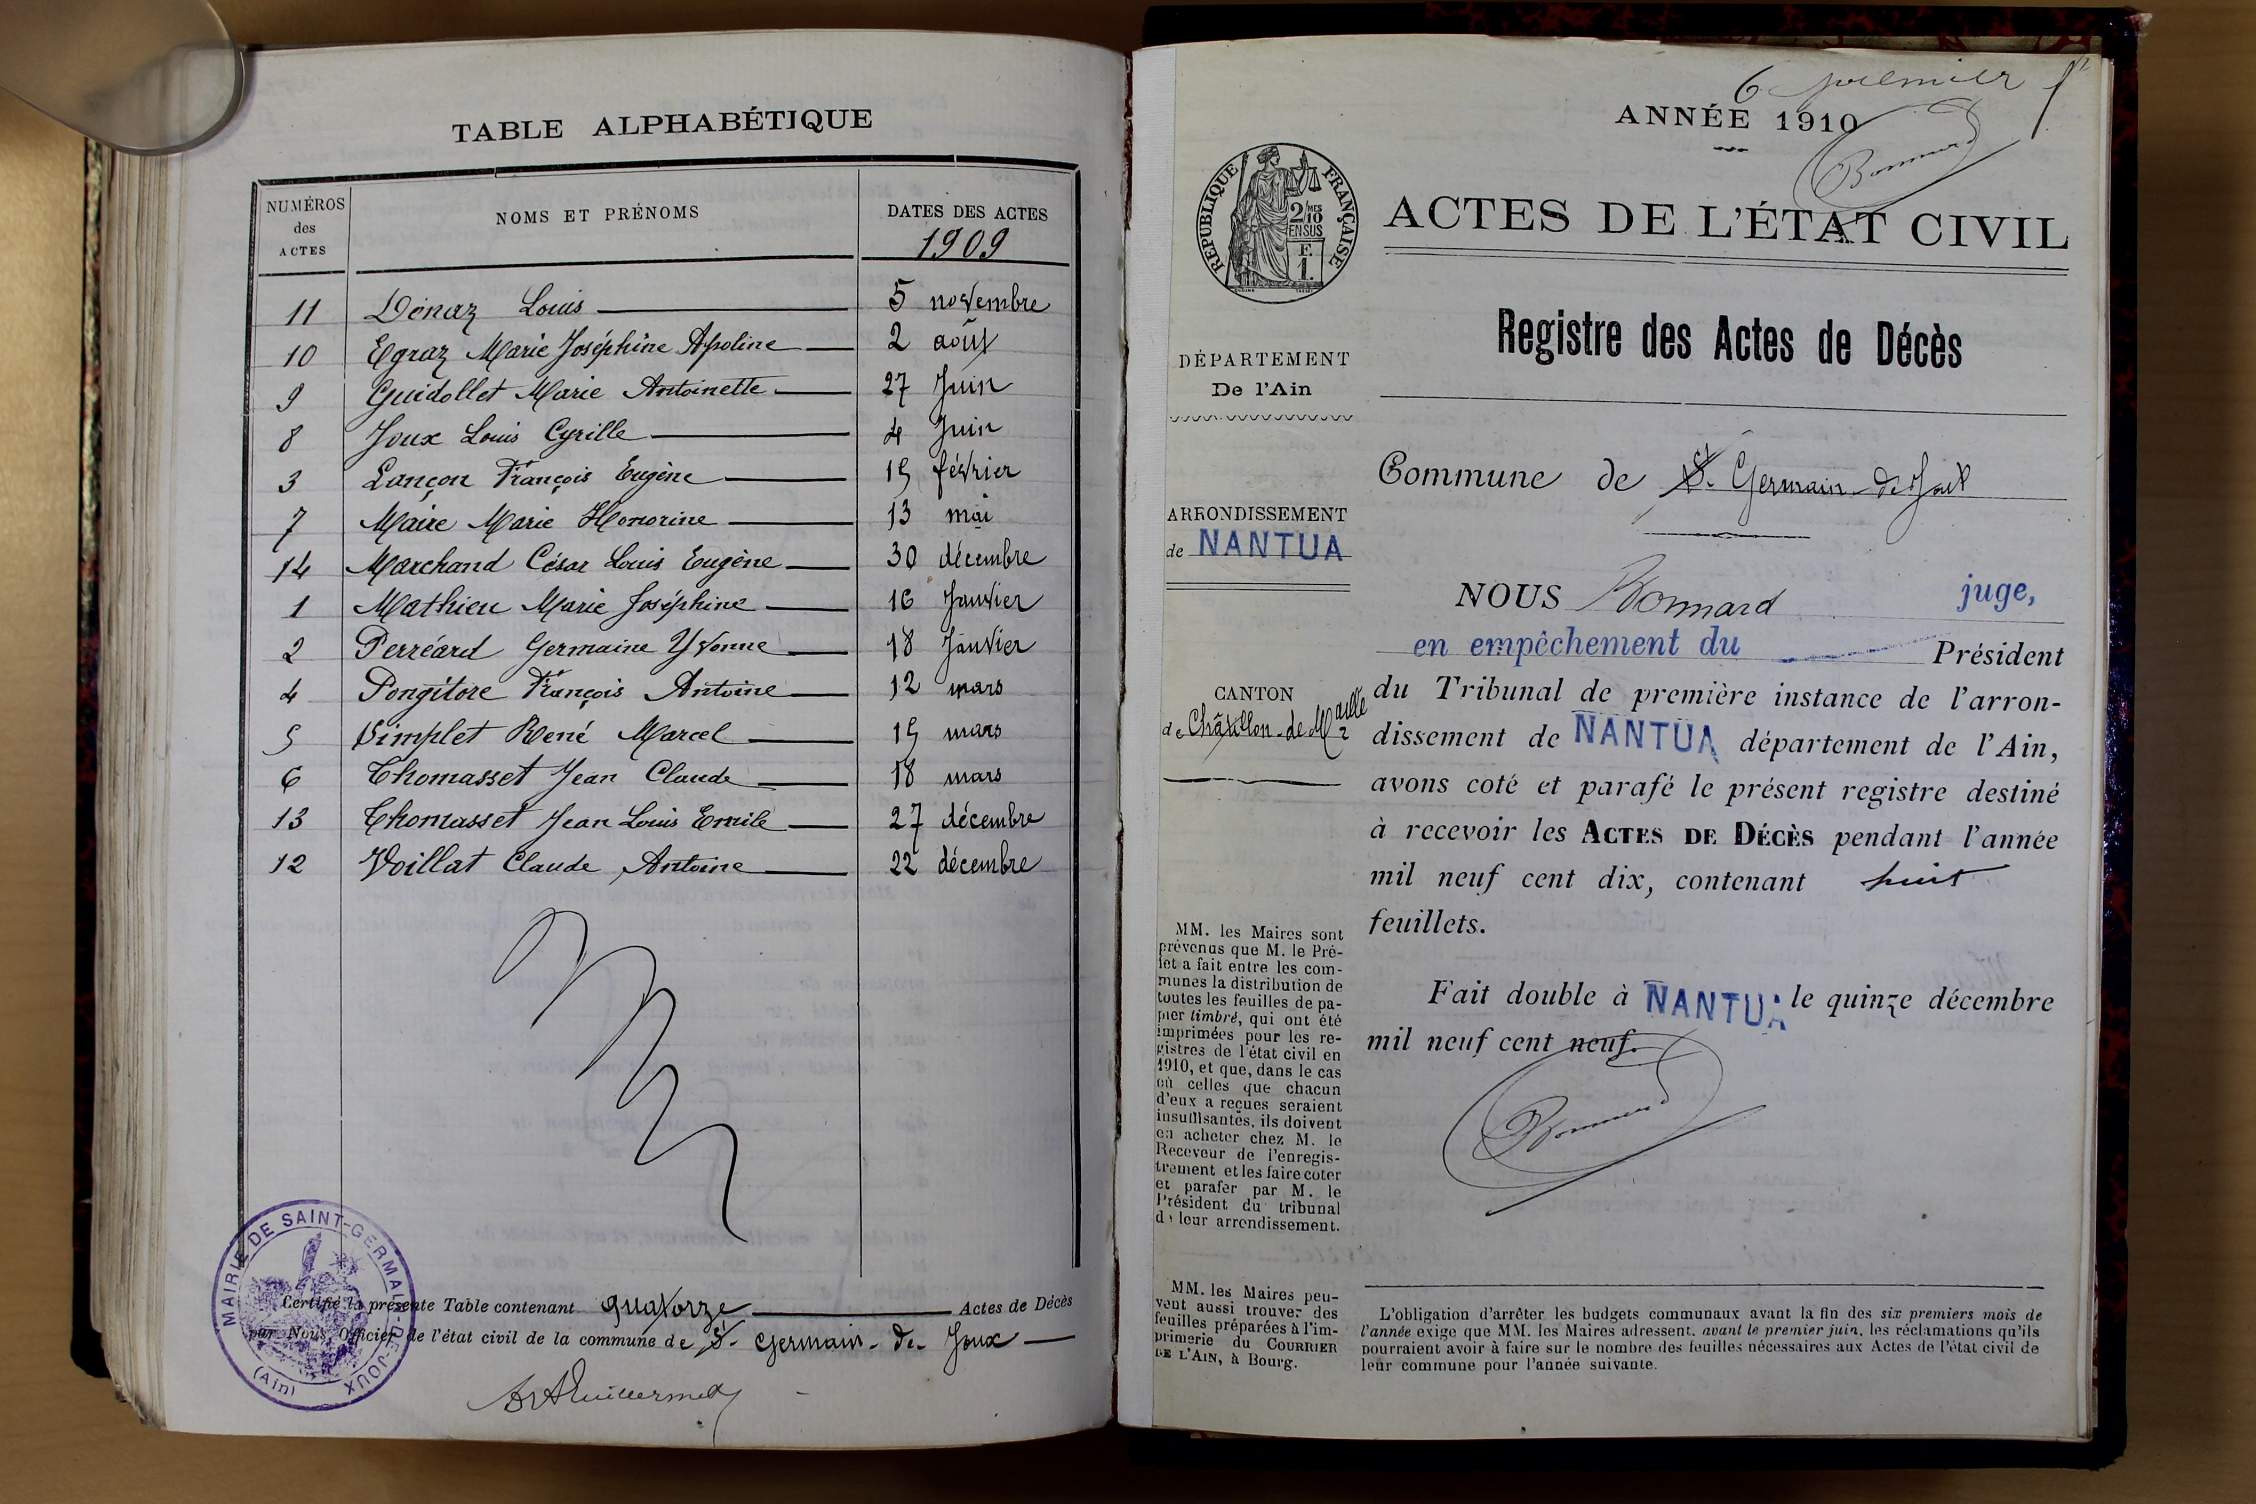 TABLE ALPHABÉTIQUE
NUMÉROS des ACTES
NOMS ET PRÉNOMS
DATES DES ACTES
1909
11 Dénaz Louis 5 novembre
10 Egraz Marie Joséphine Apoline 2 août
9 Guidollet Marie Antoinette 27 Juin
8 Joux Louis Cyrille 4 Juin
3 Lançon François Eugène 15 février
7 Maire Marie Honorine 13 mai
14 Marchand César Louis Eugène 30 décembre
1 Mathieu Marie Joséphine 16 Janvier
2 Perréard Germaine Yvonne 18 Janvier
4 Pongitore François Antoine 12 mars
5 Simplet René Marcel 15 mars
6 Thomasset Jean Claude 18 mars
13 Thomasset Jean Louis Emile 27 décembre
12 Voillat Claude Antoine 22 décembre
MAIRIE DE SAINT-GERMAIN-DE-JOUX
(Ain)
Certifié la présente Table contenant quatorze Actes de Décès
par Nous, Officier de l'état civil de la commune de St. Germain-de-Joux
premier
ANNÉE 1910
Bonnard
RÉPUBLIQUE FRANÇAISE
2/10 MES
EN SUS
F.
1.
ACTES DE L'ÉTAT CIVIL
Registre des Actes de Décès
DÉPARTEMENT
De l'Ain
Commune de St. Germain-de-Joux
ARRONDISSEMENT
de NANTUA
NOUS Bonnard juge,
en empêchement du Président
CANTON
de Châtillon-de-Mlle
du Tribunal de première instance de l'arron-
dissement de NANTUA département de l'Ain,
avons coté et parafé le présent registre destiné
à recevoir les ACTES DE DÉCÈS pendant l'année
mil neuf cent dix, contenant huit
feuillets.
Fait double à NANTUA le quinze décembre
mil neuf cent neuf.
Bonnard
MM. les Maires sont
prévenus que M. le Pré-
fet a fait entre les com-
munes la distribution de
toutes les feuilles de pa-
pier timbré, qui ont été
imprimées pour les re-
gistres de l'état civil en
1910, et que, dans le cas
où celles que chacun
d'eux a reçues seraient
insuffisantes, ils doivent
en acheter chez M. le
Receveur de l'enregis-
trement et les faire coter
et parafer par M. le
Président du tribunal
de leur arrondissement.
MM. les Maires peu-
vent aussi trouver des
feuilles préparées à l'im-
primerie du COURRIER
DE L'AIN, à Bourg.
L'obligation d'arrêter les budgets communaux avant la fin des six premiers mois de
l'année exige que MM. les Maires adressent, avant le premier juin, les réclamations qu'ils
pourraient avoir à faire sur le nombre des feuilles nécessaires aux Actes de l'état civil de
leur commune pour l'année suivante.